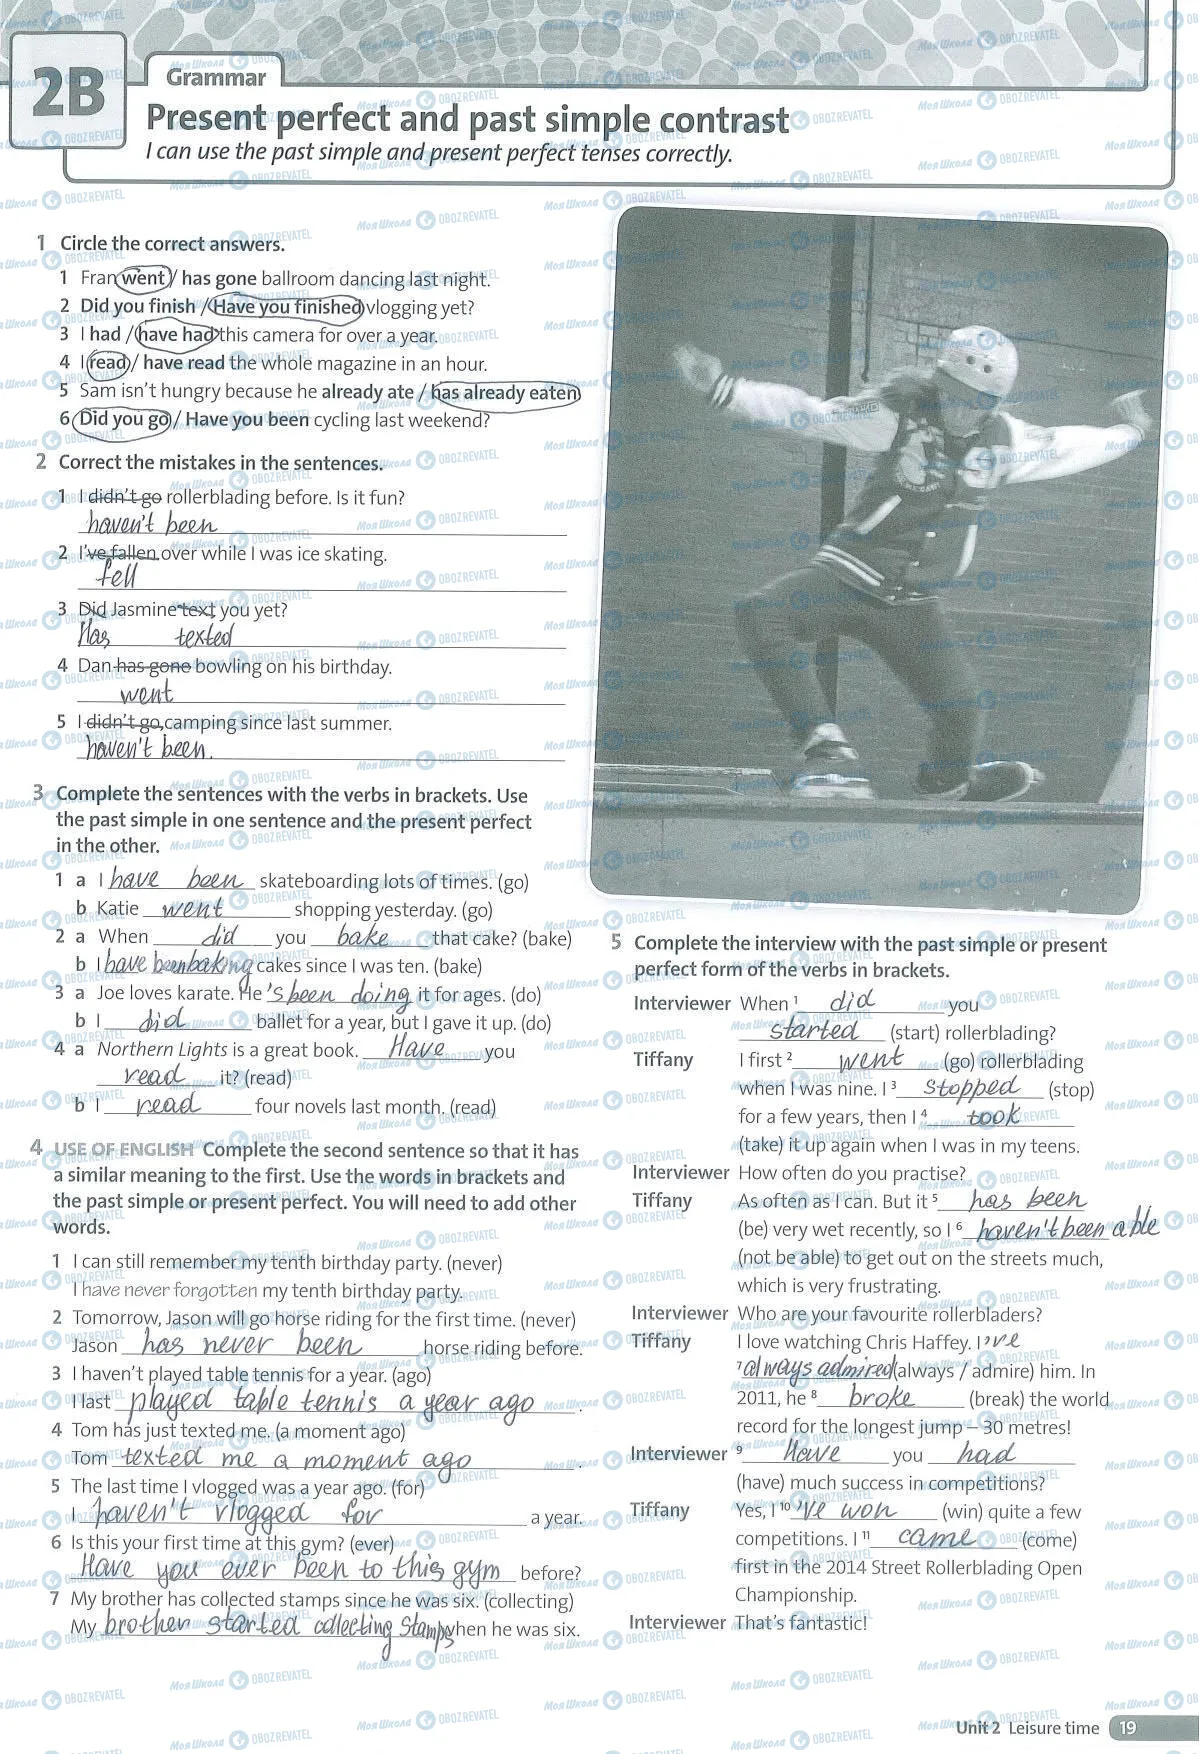 2B
Grammar
Present perfect and past simple contrast
I can use the past simple and present perfect tenses correctly.
1 Circle the correct answers.
1 Fran went / has gone ballroom dancing last night.
2 Did you finish / Have you finished vlogging yet?
3 I had / have had this camera for over a year.
4 I read / have read the whole magazine in an hour.
5 Sam isn't hungry because he already ate / has already eaten
6 Did you go / Have you been cycling last weekend?
2 Correct the mistakes in the sentences.
1 I didn't go rollerblading before. Is it fun?
haven't been
2 I've fallen over while I was ice skating.
fell
3 Did Jasmine text you yet?
Has texted
4 Dan has gone bowling on his birthday.
went
5 I didn't go camping since last summer.
haven't been.
3 Complete the sentences with the verbs in brackets. Use
the past simple in one sentence and the present perfect
in the other.
1 a I have been skateboarding lots of times. (go)
b Katie went shopping yesterday. (go)
2 a When did you bake that cake? (bake)
b I have been baking cakes since I was ten. (bake)
3 a Joe loves karate. He 's been doing it for ages. (do)
b I did ballet for a year, but I gave it up. (do)
4 a Northern Lights is a great book. Have you
read it? (read)
b I read four novels last month. (read)
4 USE OF ENGLISH Complete the second sentence so that it has
a similar meaning to the first. Use the words in brackets and
the past simple or present perfect. You will need to add other
words.
1 I can still remember my tenth birthday party. (never)
I have never forgotten my tenth birthday party.
2 Tomorrow, Jason will go horse riding for the first time. (never)
Jason has never been horse riding before.
3 I haven't played table tennis for a year. (ago)
I last played table tennis a year ago .
4 Tom has just texted me. (a moment ago)
Tom texted me a moment ago .
5 The last time I vlogged was a year ago. (for)
I haven't vlogged for a year.
6 Is this your first time at this gym? (ever)
Have you ever been to this gym before?
7 My brother has collected stamps since he was six. (collecting)
My brother started collecting stamps when he was six.
5 Complete the interview with the past simple or present
perfect form of the verbs in brackets.
Interviewer When 1 did you
started (start) rollerblading?
Tiffany I first 2 went (go) rollerblading
when I was nine. I 3 stopped (stop)
for a few years, then I 4 took
(take) it up again when I was in my teens.
Interviewer How often do you practise?
Tiffany As often as I can. But it 5 has been
(be) very wet recently, so I 6 haven't been able
(not be able) to get out on the streets much,
which is very frustrating.
Interviewer Who are your favourite rollerbladers?
Tiffany I love watching Chris Haffey. I 've
7 always admired (always / admire) him. In
2011, he 8 broke (break) the world
record for the longest jump – 30 metres!
Interviewer 9 Have you had
(have) much success in competitions?
Tiffany Yes, I 10 've won (win) quite a few
competitions. I 11 came (come)
first in the 2014 Street Rollerblading Open
Championship.
Interviewer That's fantastic!
Unit 2 Leisure time 19
Моя Школа OBOZREVATEL